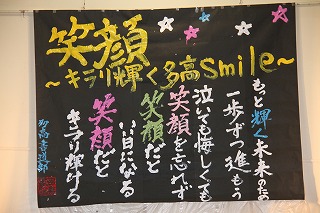 笑顔
～キラリ輝く多高smile～
もっと輝く未来のため
一歩ずつ進もう
泣いても悔しくても
笑顔を忘れず
笑顔だと
いい日になる
笑顔だと
キラリ輝ける
多高書道部